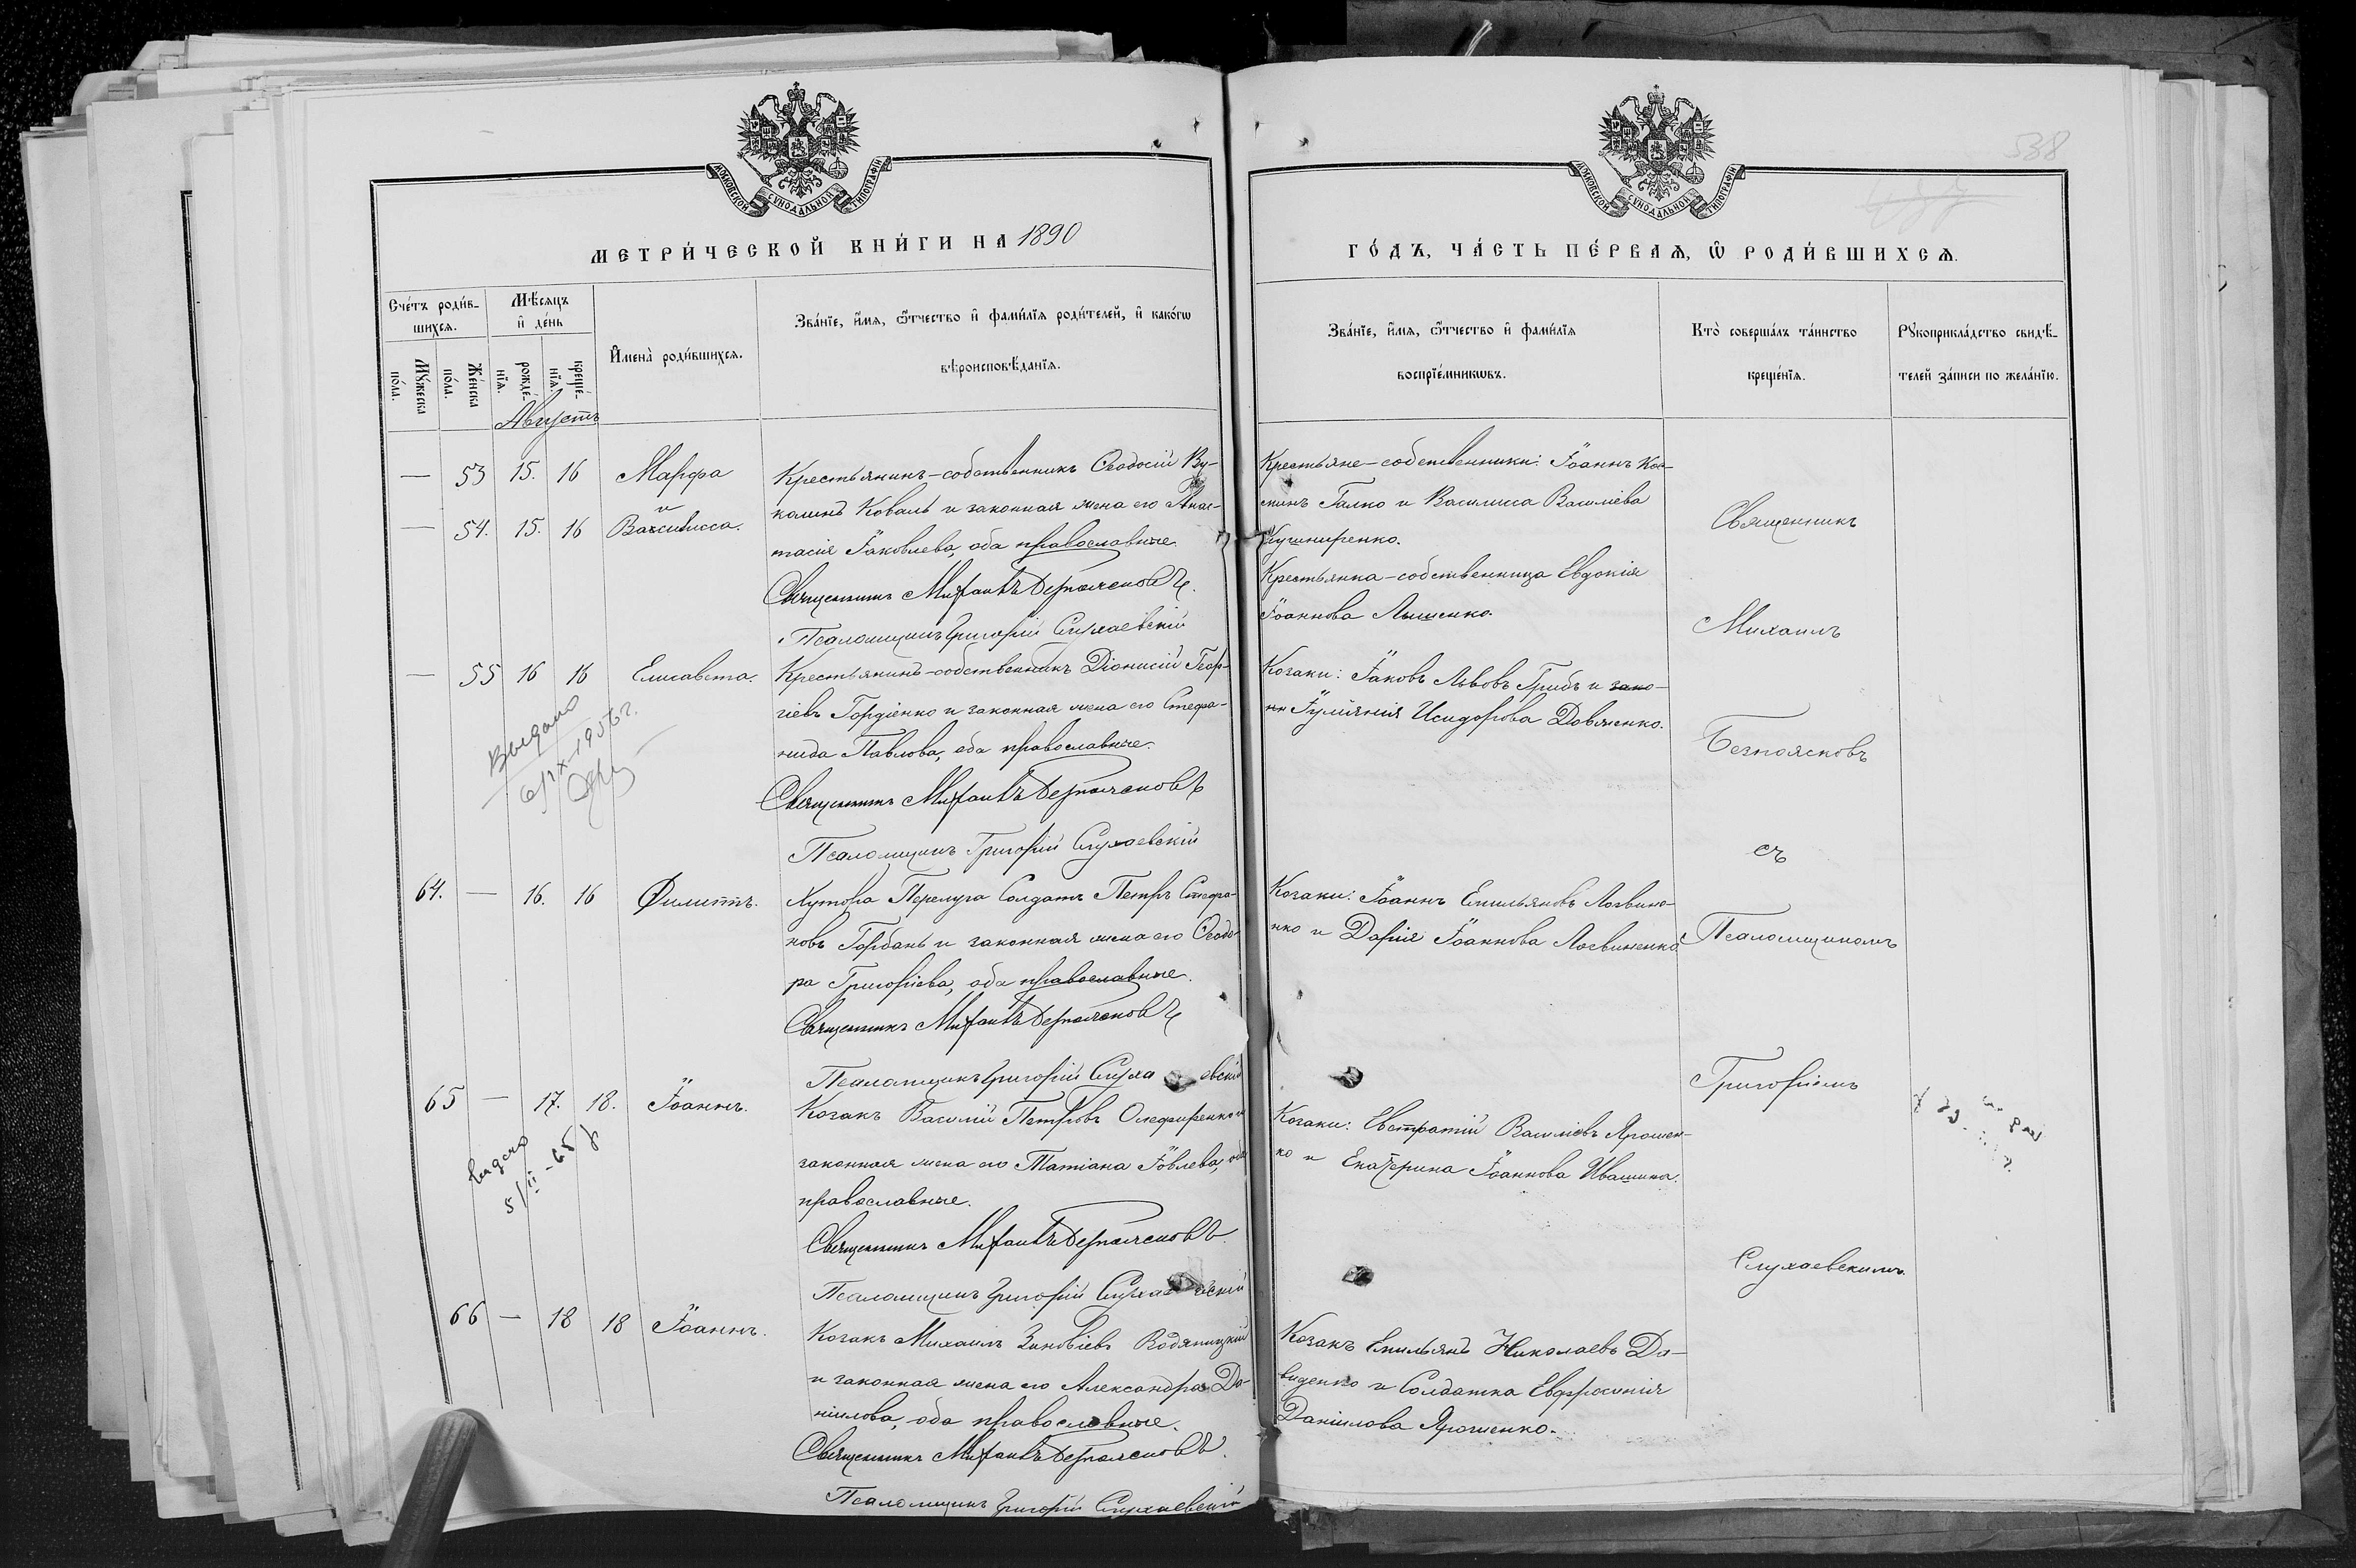 МОСКОВСКОЙ СУНОДАЛЬНОЙ ТИПОГРАФІИ
МЕТРИ́ЧЕСКОЙ КНИ́ГИ НА 1890
Сче́тъ роди́в-
шихся.
Мѣ́сяцъ
и҆ де́нь
Мꙋ́жеска
по́ла.
Же́нска
по́ла.
рожде́-
нїѧ.
креще́-
нїѧ.
И҆мена̀ роди́вшихсѧ.
Зва́нїе, и҆́мѧ, ѻ҆́тчество и҆ фами́лїѧ роди́телей, и҆ како́гѡ
вѣроисповѣ́данїѧ.
Августъ
— 53 15. 16 Марфа
и
— 54. 15. 16 Василисса.
Крестьянинъ-собственникъ Ѳеодосій Ву-
колинъ Коваль и законная жена его Анас-
тасія Іаковлева, оба православные.
Священникъ Михаилъ Безпоясковъ.
Псаломщикъ Григорій Слухаевскій
— 55 16 16 Елисавета.
Крестьянинъ-собственникъ Діонисій Геор-
гіевъ Гордіенко и законная жена его Стефа-
нида Павлова, оба православные.
Священникъ Михаилъ Безпоясковъ
Псаломщикъ Григорій Слухаевскій
Выдано
6/IX-1956г.
64. — 16. 16 Филиппъ.
Хутора Перелуга Солдатъ Петръ Стефа-
новъ Горбань и законная жена его Ѳеодо-
ра Григоріева, оба православные.
Священникъ Михаилъ Безпоясковъ
Псаломщикъ Григорій Слухаевскій
65 — 17. 18. Іоаннъ.
Козакъ Василій Петровъ Олефиренко и
законная жена его Татіана Іовлева, оба
православные.
Священникъ Михаилъ Безпоясковъ.
Псаломщикъ Григорій Слухаевскій
выдано
5/II-65
66 — 18 18 Іоаннъ.
Козакъ Михаилъ Зиновіевъ Водяницкій
и законная жена его Александра Да-
ніилова, оба православные.
Священникъ Михаилъ Безпоясковъ.
Псаломщикъ Григорій Слухаевскій
538
МОСКОВСКОЙ СУНОДАЛЬНОЙ ТИПОГРАФІИ
ГО́ДЪ, ЧА́СТЬ ПЕ́РВАѦ, Ѽ РОДИ́ВШИХСѦ.
Зва́нїе, и҆́мѧ, ѻ҆́тчество и҆ фами́лїѧ
воспрїе́мникѡвъ.
Кто̀ соверша́лъ та́инство
креще́нїѧ.
Рꙋкоприкла́дство свидѣ́-
телей за́писи по жела́нїю.
Крестьяне-собственники: Іоаннъ Кос-
минъ Галко и Василисса Василіева
Кушниренко.
Крестьянка-собственница Евдокія
Іоаннова Лышенко.
Козаки: Іаковъ Львовъ Грибъ и зако-
нн Іуліянія Исидорова Довженко.
Козаки: Іоаннъ Емильяновъ Логвине-
нко и Дарія Іоаннова Логвиненко.
Козаки: Евстратій Василіевъ Ярошен-
ко и Екатерина Іоаннова Ивашина.
Козакъ Емильянъ Николаевъ Да-
виденко и Солдатка Евфросинія
Даніилова Ярошенко.
Священникъ
Михаилъ
Безпоясковъ
съ
Псаломщикомъ
Григоріемъ
Слухаевскимъ.